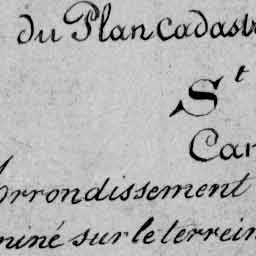 du Plan cadast
St
Can
Arrondissement
miné sur le terrein